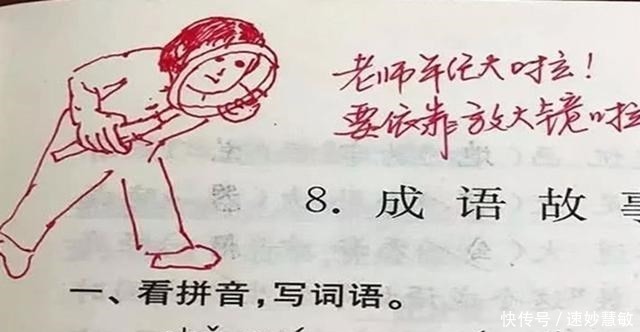 老师年纪大啦!
要依靠放大镜啦
8. 成语故事
一、看拼音,写词语。
快传号/速妙慧敏